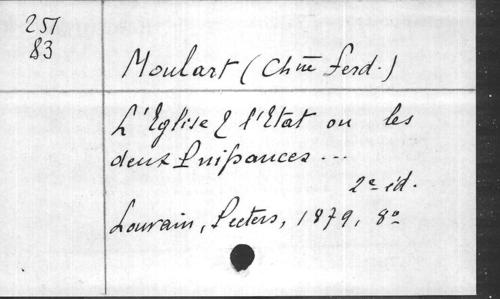 251
83
Moulart (Chne ferd.)
L'Eglise & l'Etat ou les
deux Puissances...
2e éd.
Louvain, Peeters, 1879, 8o